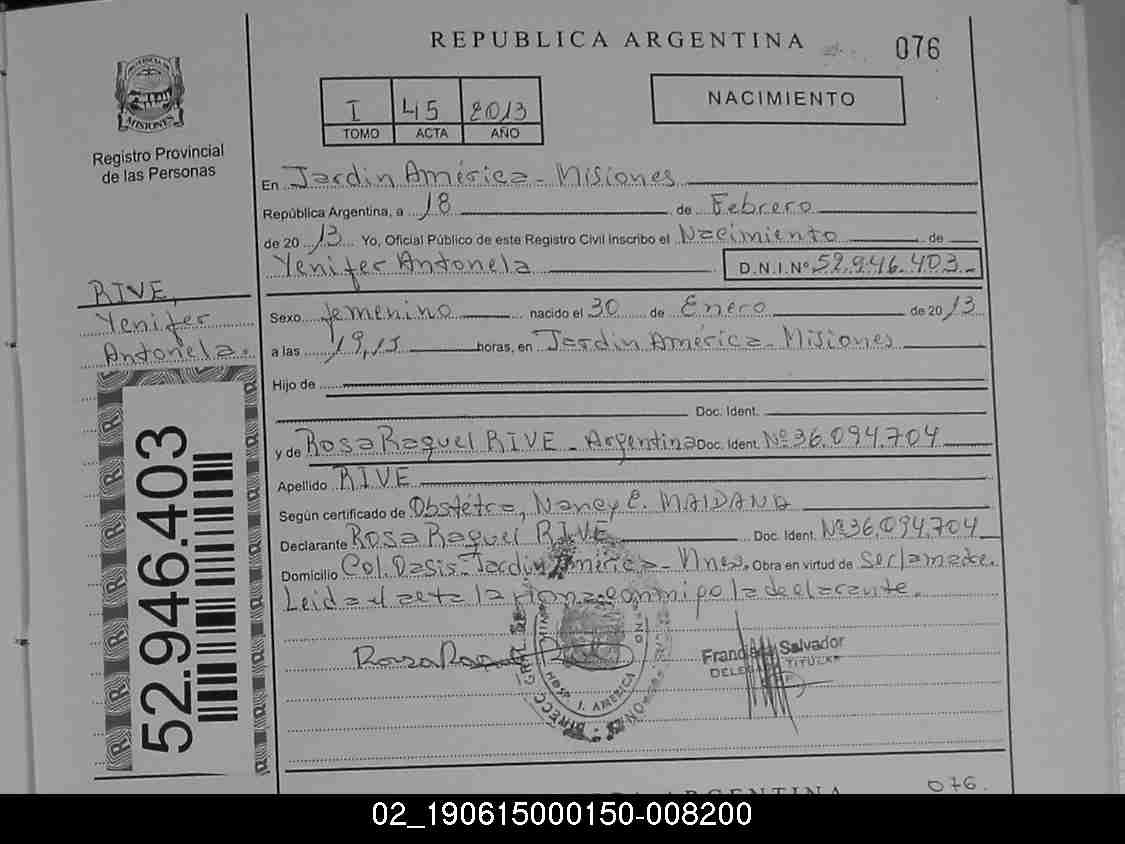 REPUBLICA ARGENTINA
076
I 45 2013
TOMO ACTA AÑO
NACIMIENTO
MISIONES
Registro Provincial
de las Personas
En Jardin América - Misiones
República Argentina, a 18 de Febrero
de 2013 Yo, Oficial Público de este Registro Civil inscribo el Nacimiento de
Yenifer Antonela D.N.I.Nº 52.946.403
RIVE,
Yenifer
Antonela.
Sexo femenino nacido el 30 de Enero de 2013
a las 19,15 horas, en Jardin América - Misiones
Hijo de
Doc. Ident.
y de Rosa Raquel RIVE - Argentina Doc. Ident. Nº 36.094.704
Apellido RIVE
Según certificado de Obstétra, Nancy E. MAIDANA
Declarante Rosa Raquel RIVE Doc. Ident. Nº 36.094.704
Domicilio Col. Oasis - Jardin América - Mnes. Obra en virtud de ser la madre.
Leida el acta la firma conmigo la declarante.
52.946.403
Rosa
J. AMERICA
Salvador
TITULAR
076.
02_190615000150-008200